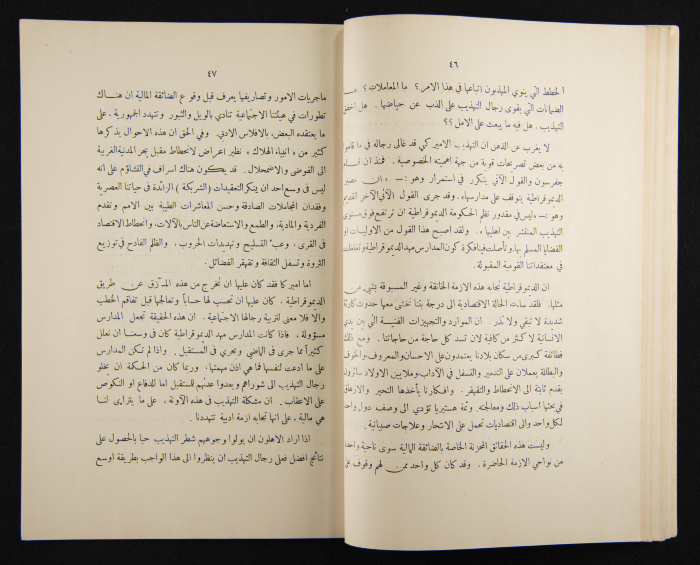 ٤٦
الخطط التي ينوي المهذبون اتباعها في هذا الامر؟ ما المعاملات؟
الضمانات التي يقوى رجال التهذيب على الذب عن حياضها. هل اخفق
التهذيب. هل فيه ما يبعث على الامل؟؟
لا يغرب عن الذهن ان التهذيب الاميركي قد غالى رجاله في ما قاموا
به من بعض تصريحات قوية من جهة اهميته الخصوصية. فمنذ ان
جفرسون والقول الآتي يتكرر في استمرار وهو :- « ان مصير
الديموقراطية يتوقف على مدارسها. وقد جرى القول الآتي الآخر
وهو :- ليس في مقدور نظم الحكومة الديموقراطية ان ترتفع فوق مستوى
التهذيب المنتشر بين اهليها. ولقد اصبح هذا القول من الاوليات او
القضايا المسلم بها. وتأصلت فينا فكرة كون المدارس مهد الديموقراطية وتغلغلت
في معتقداتنا القومية المقبولة.
ان الديموقراطية تجابه هذه الازمة الخانقة وغير المسبوقة بشيء من
مثلها. فلقد ساءت الحالة الاقتصادية الى درجة بتنا نخشى معها حدوث كارثة
شديدة لا تبقي ولا تذر. ان الموارد والتجهيزات الفنية التي بين يدي
الانسانية لا كثر من كافية لان تسد كل حاجة من حاجاتنا. ومع ذلك
فطائفة كبرى من سكان بلادنا يعتمدون على الاحسان والمعروف. والخوف
والبطالة يعملان على التدمير والتسفل في الآداب. وملايين الاولاد سائرون
بقدم ثابتة الى الانحطاط والتقهقر. وافكارنا يأخذها التحير والارهاق
في بحثها اسباب ذلك ومعالجته. وثمة هستيريا تؤدي الى وصف دواء واحد
لكل واحد والى اقتصاديات تحمل على الانتحار وعلاجات صبيانية.
وليست هذه الحقائق المحزنة الخاصة بالضائقة المالية سوى ناحية واحدة
من نواحي الازمة الحاضرة. وقد كان كل واحد ممن لهم وقوف على
٤٧
ماجريات الامور وتصاريفها يعرف قبل وقوع الضائقة المالية ان هناك
تطورات في هيئتنا الاجتماعية تنادي بالويل والثبور وتتهدد الجمهورية. على
ما يعتقده البعض. بالافلاس الادبي. وفي الحق ان هذه الاحوال يذكرها
كثير من « انبياء الهلاك » نظير اعراض لانحطاط مقبل يجر المدنية الغربية
الى الفوضى والاضمحلال. قد يكون هناك اسراف في التشاؤم على انه
ليس في وسع احد ان ينكر التعقيدات (الشربكة) الزائدة في حياتنا العصرية
وفقدان المجاملات الصادقة وحسن المعاشرات الطيبة بين الامم وتقدم
الفردية والمادية. والطمع والاستعاضة عن الناس بالآلات. وانحطاط الاقتصاد
في القرى. وعبء التسليح وتهديدات الحروب. والظلم الفادح في توزيع
الثروة وتسفل الثقافة وتقهقر الفضائل.
اما اميركا فقد كان عليها ان تخرج من هذه المآزق عن طريق
الديموقراطية. كان عليها ان تحسب لها حساباً وتعالجها قبل تفاقم الخطب
والا فلا معنى لتربية رجالها الاجتماعية. ان هذه الحقيقة تجعل المدارس
مسؤولة. فاذا كانت المدارس مهد الديموقراطية كان في وسعنا ان نعلل
كثيراً مما جرى في الماضي ويجري في المستقبل. واذا لم تكن المدارس
على ما ادعت لنفسها فما هي اذن مهمتها. وربما كان من الحكمة ان يخلو
رجال التهذيب الى شوراهم ويعدوا عدتهم للمستقبل اما للدفاع او النكوص
على الاعقاب. ان مشكلة التهذيب في هذه الآونة. على ما يتراءى لنا
هي مالية. على انها تجابه ازمة ادبية تتهددنا.
اذا اراد الاهلون ان يولوا وجوههم شطر التهذيب حباً بالحصول على
نتائج افضل فعلى رجال التهذيب ان ينظروا الى هذا الواجب بطريقة اوسع